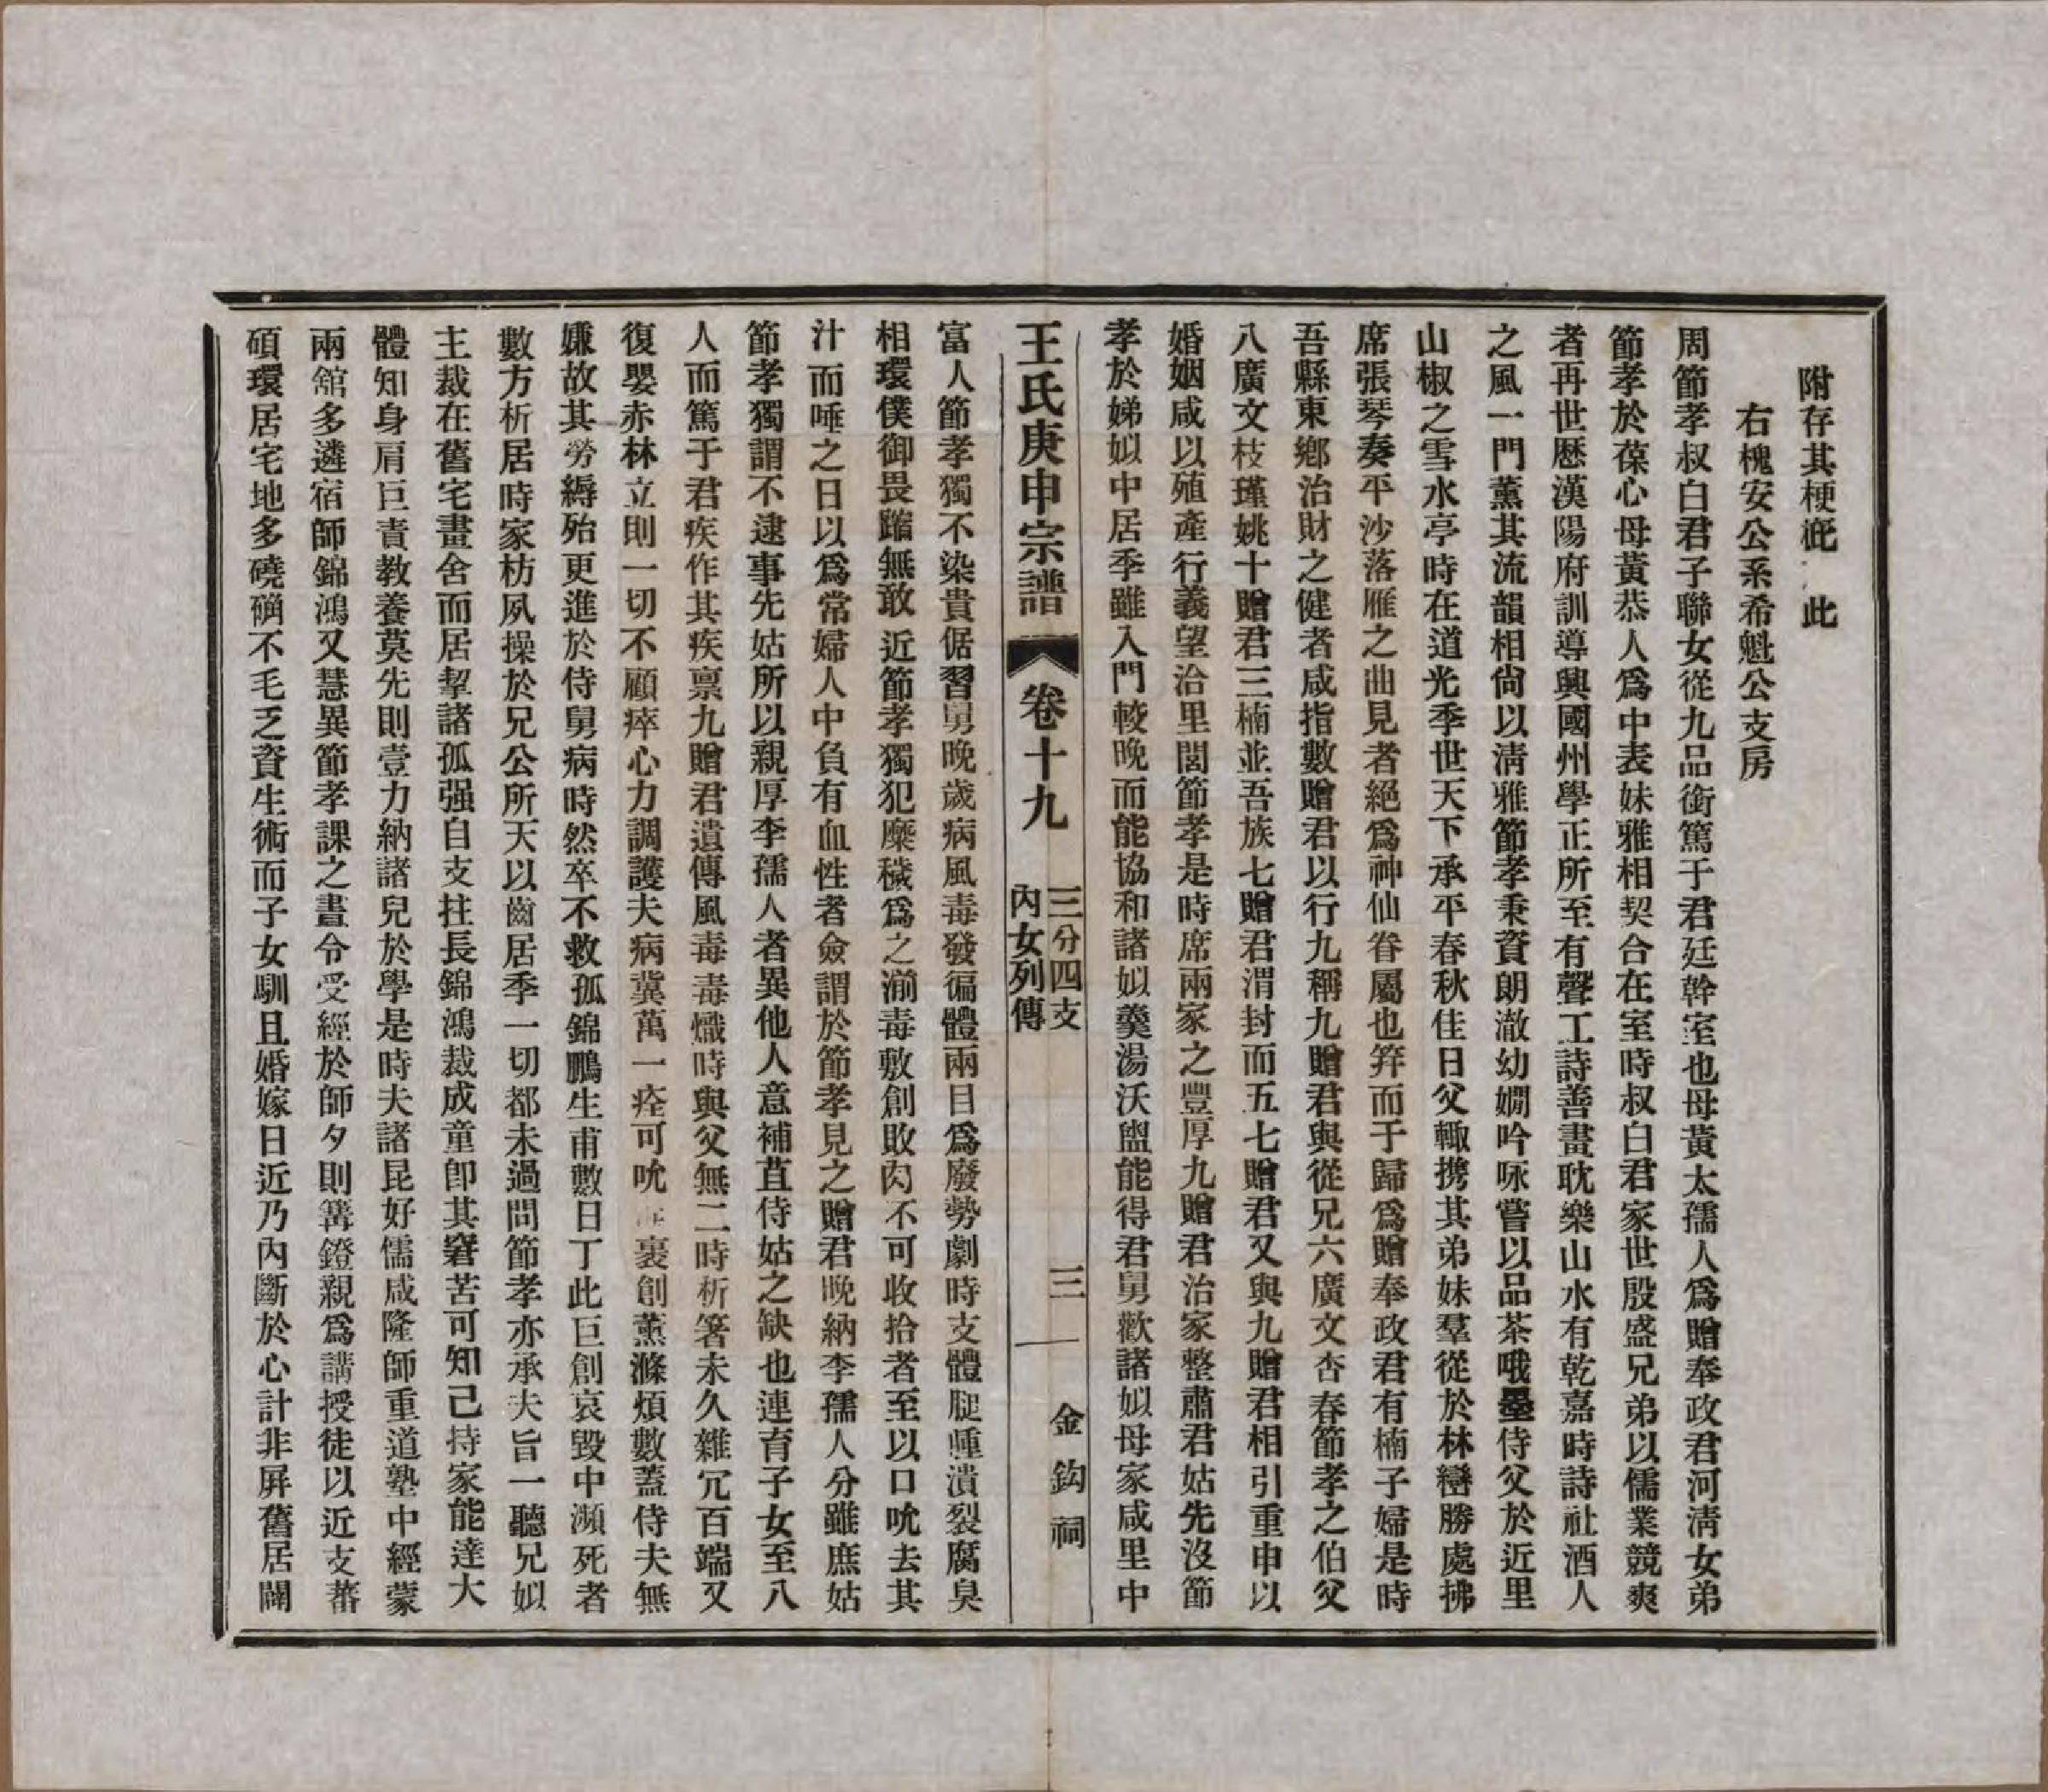 附存其梗槪 此
右槐安公系希魁公支房
周節孝叔白君子聯女從九品銜篤于君廷幹室也母黃太孺人爲贈奉政君河淸女弟
節孝於葆心母黃恭人爲中表妹雅相契合在室時叔白君家世殷盛兄弟以儒業競爽
者再世歷漢陽府訓導興國州學正所至有聲工詩善畫耽樂山水有乾嘉時詩社酒人
之風一門薰其流韻相尙以淸雅節孝秉資朗澈幼嫺吟咏嘗以品茶哦墨侍父於近里
山椒之雪水亭時在道光季世天下承平春秋佳日父輙携其弟妹羣從於林巒勝處拂
席張琴奏平沙落雁之曲見者絕爲神仙眷屬也笄而于歸爲贈奉政君有楠子婦是時
吾縣東鄉治財之健者咸指數贈君以行九稱九贈君與從兄六廣文杏春節孝之伯父
八廣文枝瑾姚十贈君三楠並吾族七贈君渭封而五七贈君又與九贈君相引重申以
婚姻咸以殖產行義望洽里閭節孝是時席兩家之豐厚九贈君治家整肅君姑先沒節
孝於娣姒中居季雖入門較晚而能協和諸姒羹湯沃盥能得君舅歡諸姒母家咸里中
王氏庚申宗譜 卷十九 三分四支 內女列傳 三 金鈎祠
富人節孝獨不染貴倨習舅晚歲病風毒發徧體兩目爲廢勢劇時支體腿蹱潰裂腐臭
相環僕御畏躇無敢近節孝獨犯糜穢爲之湔毒敷創敗肉不可收拾者至以口吮去其
汁而唾之日以爲常婦人中負有血性者僉謂於節孝見之贈君晚納李孺人分雖庶姑
節孝獨謂不逮事先姑所以親厚李孺人者異他人意補苴侍姑之缺也連育子女至八
人而篤于君疾作其疾禀九贈君遺傳風毒毒熾時與父無二時析箸未久雜冗百端又
復嬰赤林立則一切不顧瘁心力調護夫病冀萬一痊可吮 裹創薰滌煩數蓋侍夫無
嫌故其勞縟殆更進於侍舅病時然卒不救孤錦鵬生甫數日丁此巨創哀毀中瀕死者
數方析居時家枋夙操於兄公所天以齒居季一切都未過問節孝亦承夫旨一聽兄姒
主裁在舊宅畫舍而居挈諸孤强自支拄長錦鴻裁成童卽其窘苦可知己持家能達大
體知身肩巨責教養莫先則壹力納諸兒於學是時夫諸昆好儒咸隆師重道塾中經蒙
兩舘多遴宿師錦鴻又慧異節孝課之晝令受經於師夕則篝鐙親爲講授徒以近支蕃
碩環居宅地多磽确不毛乏資生術而子女馴且婚嫁日近乃內斷於心計非屏舊居闢